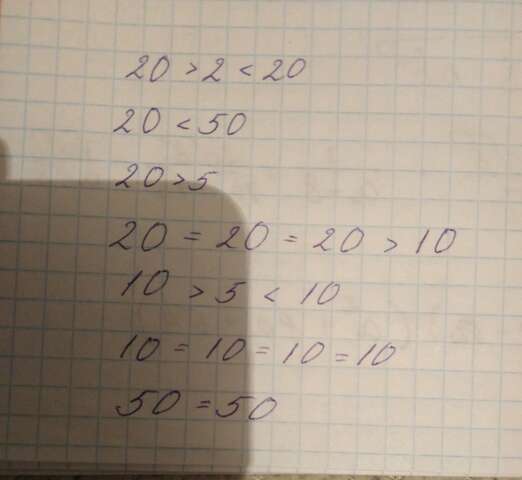 20 > 2 < 20
20 < 50
20 > 5
20 = 20 = 20 > 10
10 > 5 < 10
10 = 10 = 10 = 10
50 = 50